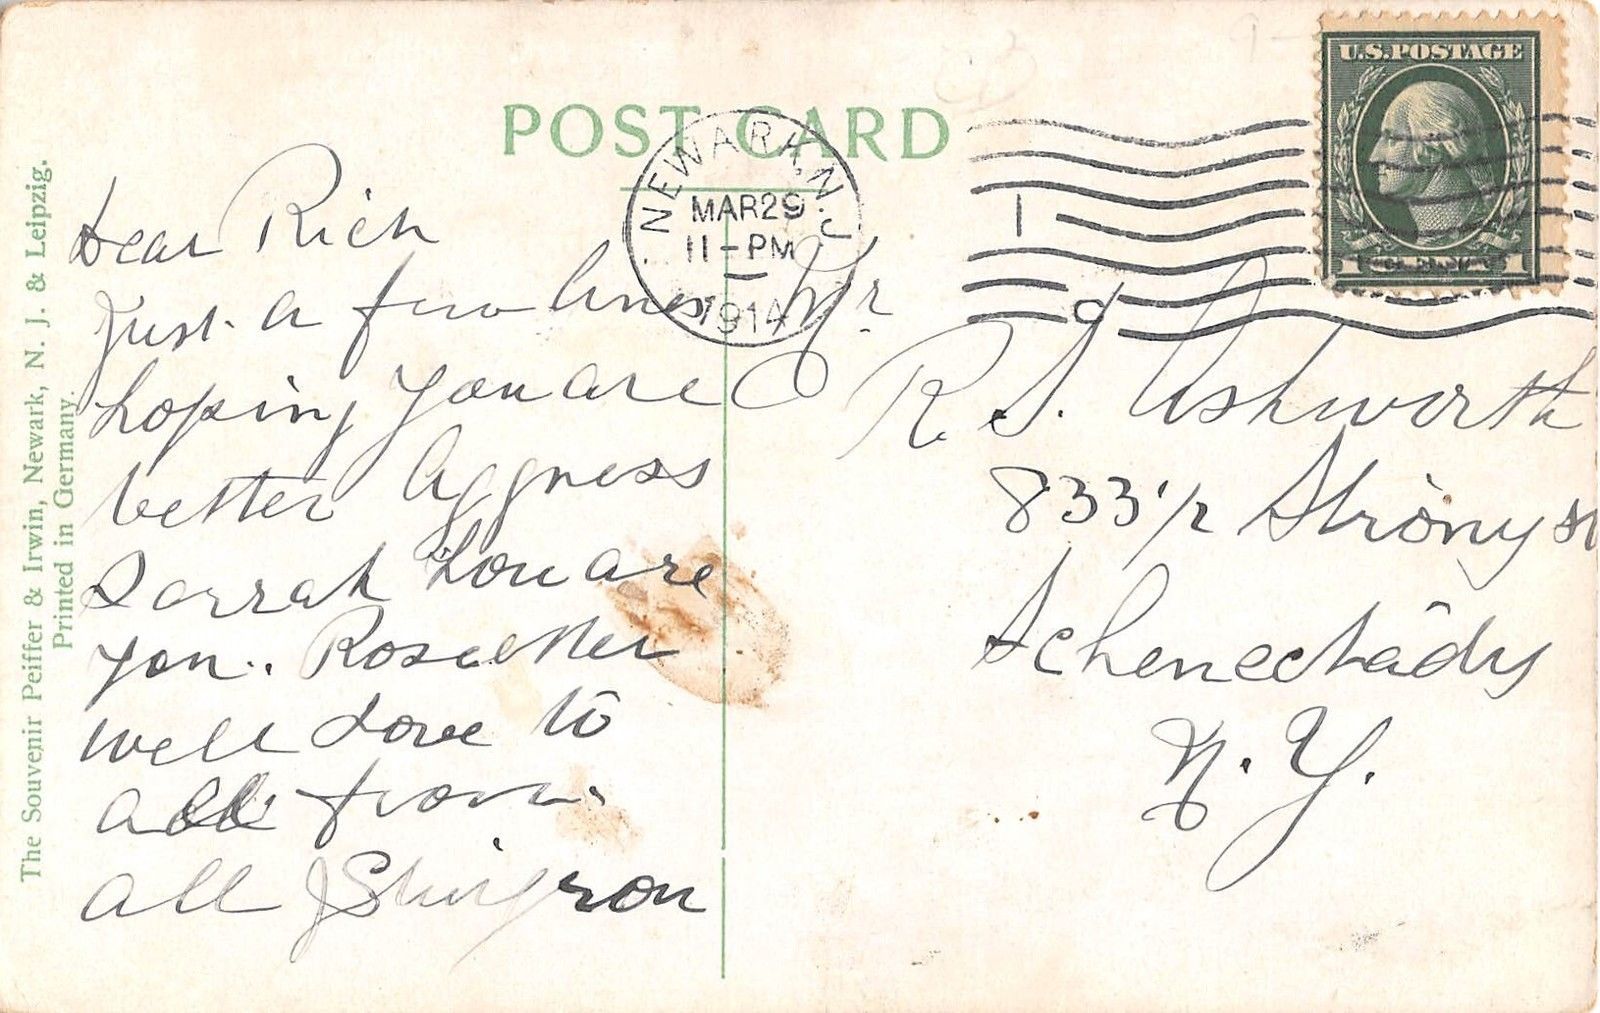 POST CARD
NEWARK, N.J.
MAR 29
11-PM
1914
U.S. POSTAGE
1 1
Dear Rich
Just a few lines
hoping you are
better Aggness
Sarrah how are
you.
well love to
all from
all J
Mr
R. S. Ashworth
833 1/2 Strong st
Schenectady
N. Y.
The Souvenir Peiffer & Irwin, Newark, N. J. & Leipzig.
Printed in Germany.